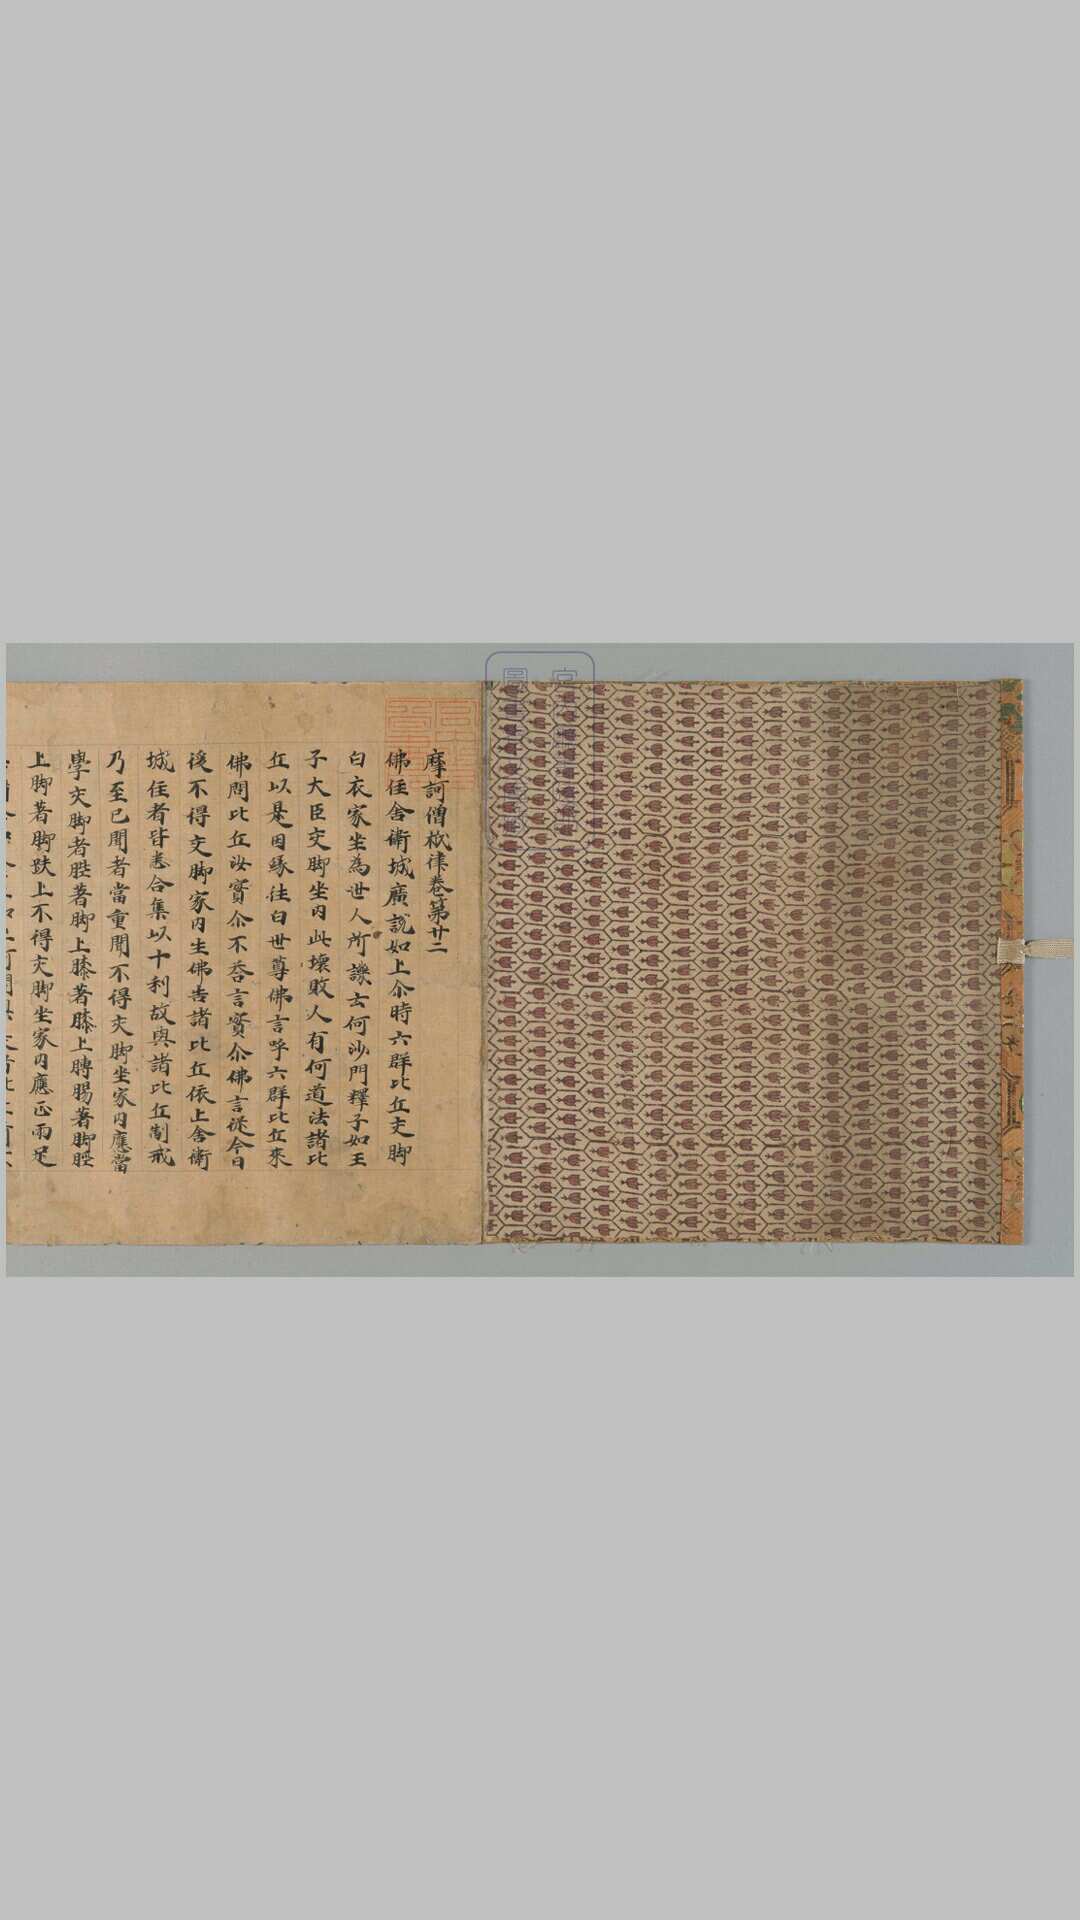 摩訶僧祇律卷第廿二
佛住舍衛城廣說如上尒時六群比丘交脚
白衣家坐為世人所譏云何沙門釋子如王
子大臣交脚坐内此壞敗人有何道法諸比
丘以是因緣往白世尊佛言呼六群比丘來
佛問比丘汝實尒不荅言實尒佛言從今日
後不得交脚家内坐佛告諸比丘依上舍衛
城住者皆悉合集以十利故與諸比丘制戒
乃至已聞者當重聞不得交脚坐家内應當
學交脚者䏶著脚上膝著膝上䏝腸著脚脛
上脚著脚趺上不得交脚坐家内應正兩足